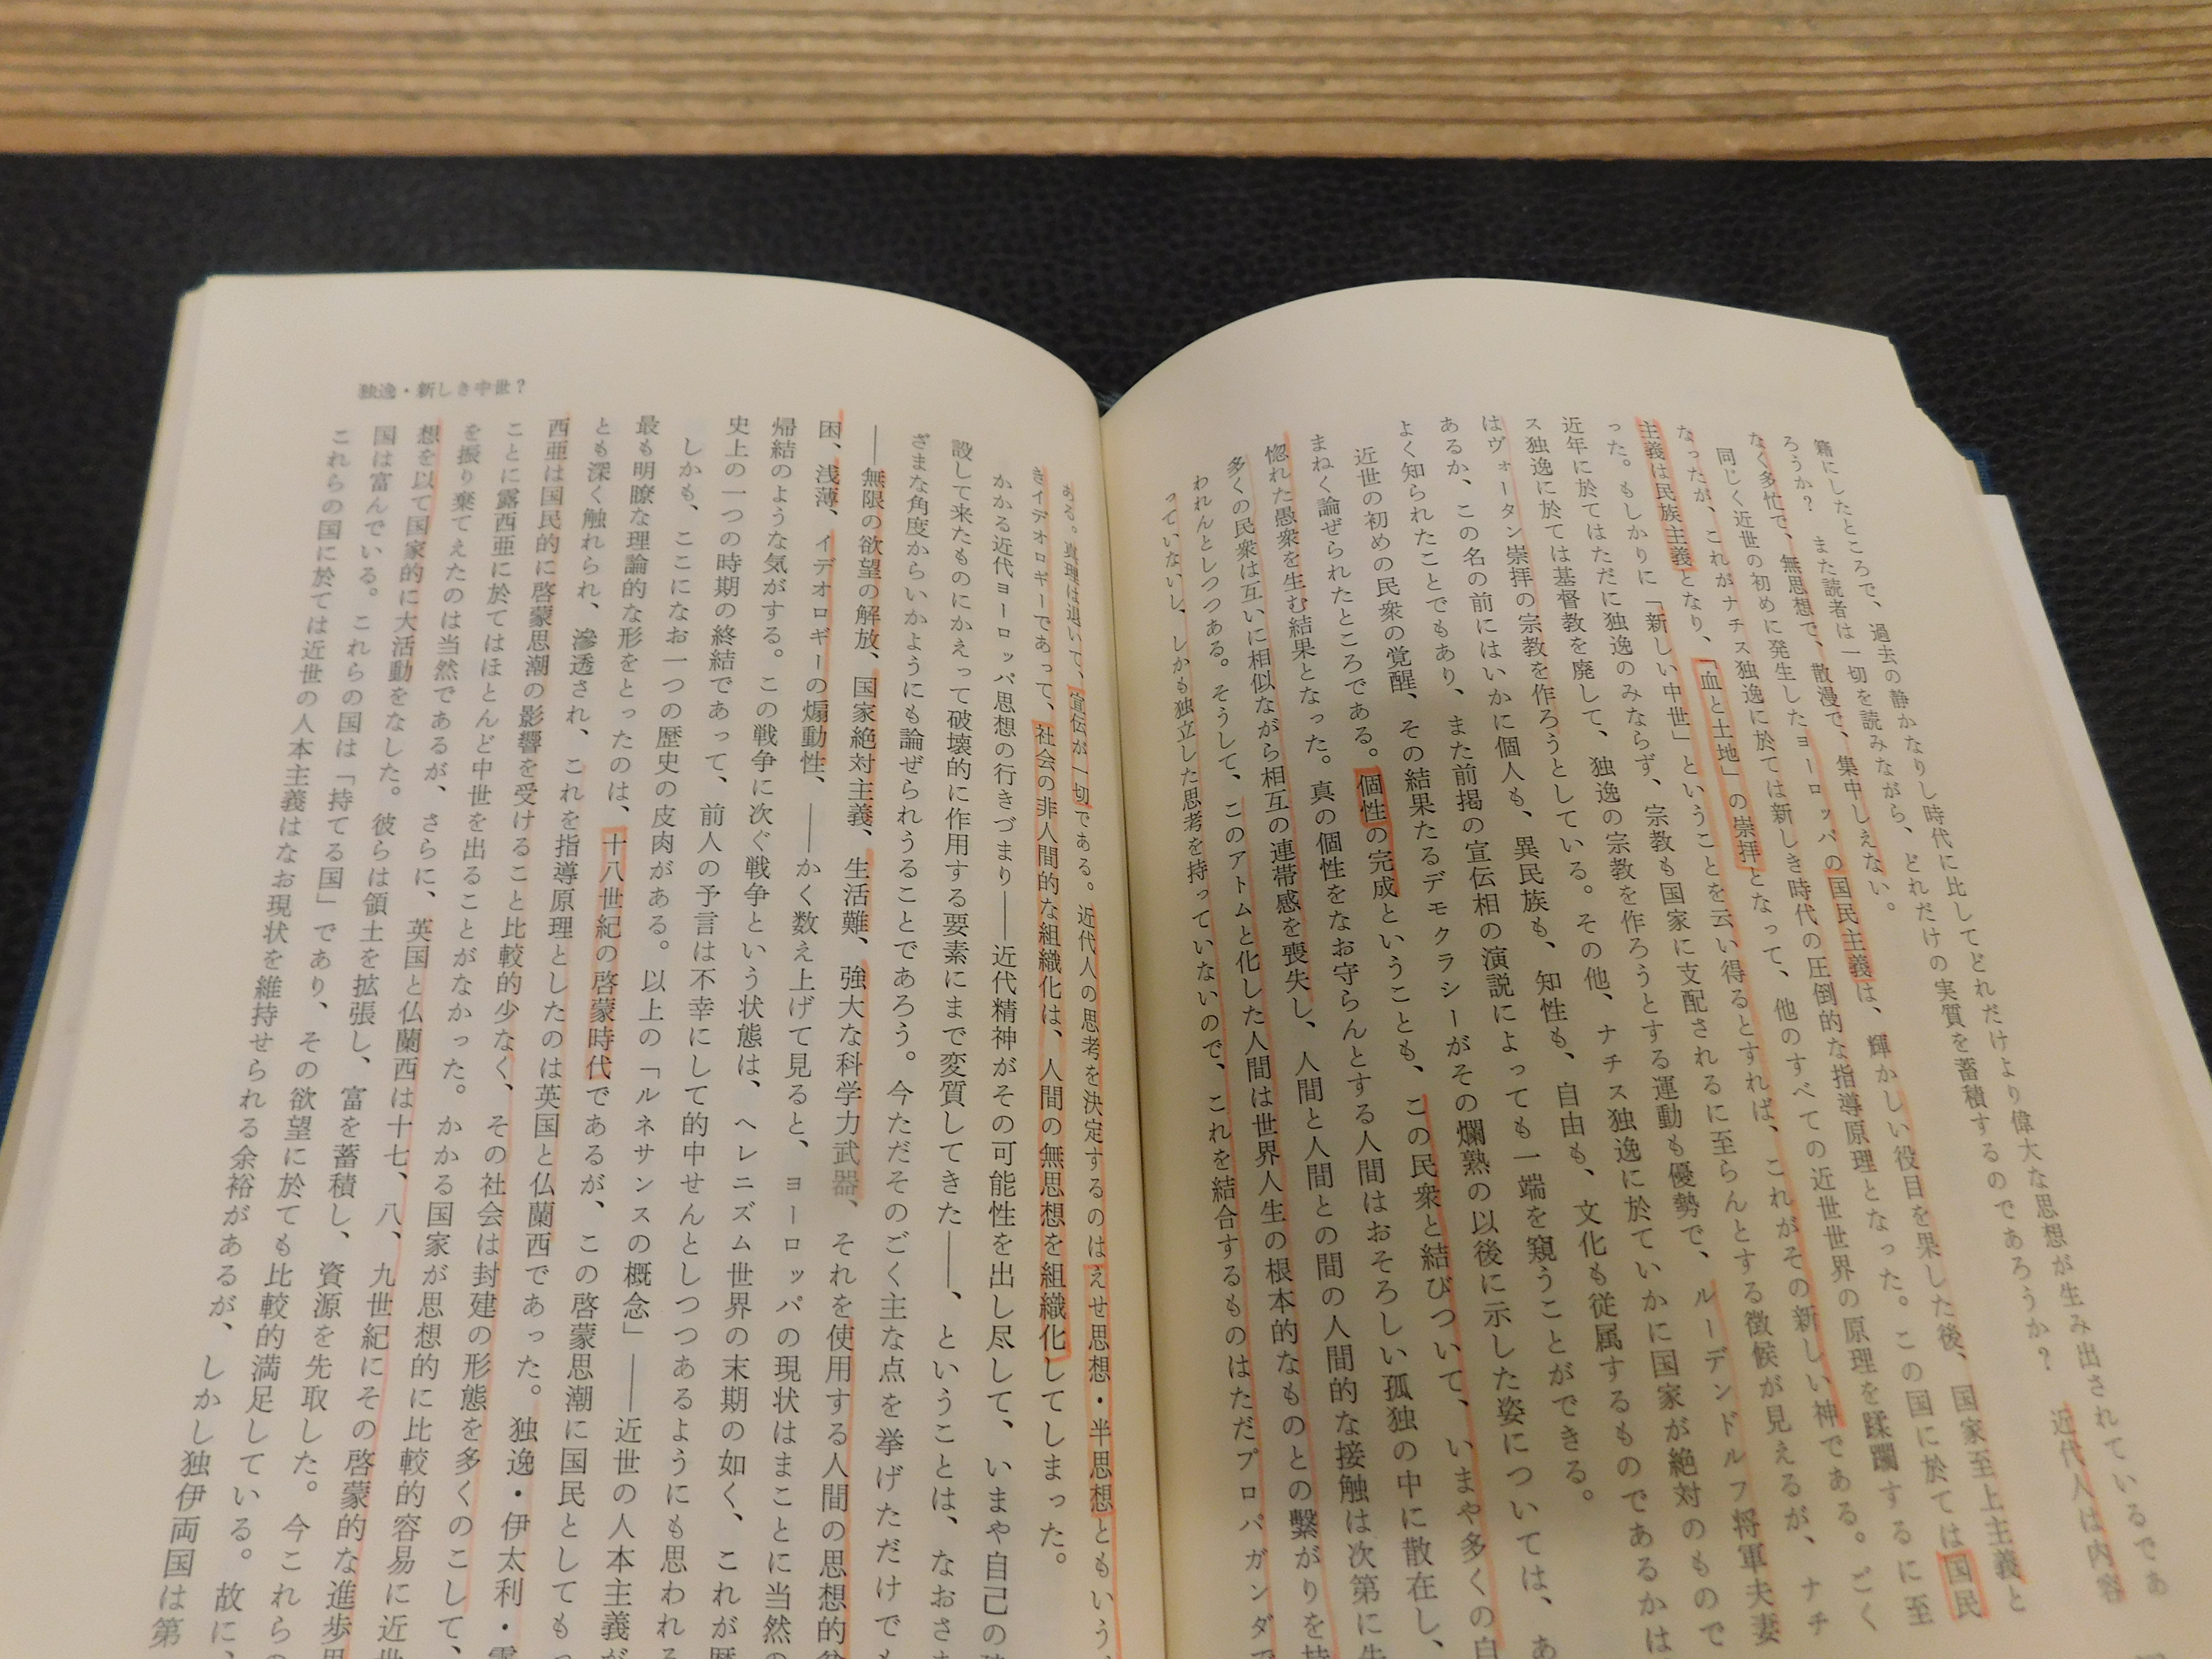 籍にしたところで、過去の静かなりし時代に比してどれだけより偉大な思想が生み出されているであ
ろうか？　また読者は一切を読みながら、どれだけの実質を蓄積するのであろうか？　近代人は内容
なく多忙で、無思想で、散漫で、集中しえない。
同じく近世の初めに発生したヨーロッパの国民主義は、輝かしい役目を果した後、国家至上主義と
なったが、これがナチス独逸に於ては新しき時代の圧倒的な指導原理となった。この国に於ては国民
主義は民族主義となり、「血と土地」の崇拝となって、他のすべての近世世界の原理を蹂躙するに至
った。もしかりに「新しい中世」ということを云い得るとすれば、これがその新しい神である。ごく
近年に於てはただに独逸のみならず、宗教も国家に支配されるに至らんとする徴候が見えるが、ナチ
ス独逸に於ては基督教を廃して、独逸の宗教を作ろうとする運動も優勢で、ルーデンドルフ将軍夫妻
はヴォータン崇拝の宗教を作ろうとしている。その他、ナチス独逸に於ていかに国家が絶対のもので
あるか、この名の前にはいかに個人も、異民族も、知性も、自由も、文化も従属するものであるかは
よく知られたことでもあり、また前掲の宣伝相の演説によっても一端を窺うことができる。
近世の初めの民衆の覚醒、その結果たるデモクラシーがその爛熟の以後に示した姿については、あ
まねく論ぜられたところである。個性の完成ということも、この民衆と結びついて、いまや多くの自
惚れた愚衆を生む結果となった。真の個性をなお守らんとする人間はおそろしい孤独の中に散在し、
多くの民衆は互いに相似ながら相互の連帯感を喪失し、人間と人間との間の人間的な接触は次第に失
われんとしつつある。そうして、このアトムと化した人間は世界人生の根本的なものとの繋がりを持
っていないし、しかも独立した思考を持っていないので、これを結合するものはただプロパガンダで
ある。真理は退いて、宣伝が一切である。近代人の思考を決定するのはえせ思想・半思想ともいう
きイデオロギーであって、社会の非人間的な組織化は、人間の無思想を組織化してしまった。
かかる近代ヨーロッパ思想の行きづまり――近代精神がその可能性を出し尽して、いまや自己の
設して来たものにかえって破壊的に作用する要素にまで変質してきた――、ということは、なおさ
ざまな角度からいかようにも論ぜられうることであろう。今ただそのごく主な点を挙げただけでも
――無限の欲望の解放、国家絶対主義、生活難、強大な科学力武器、それを使用する人間の思想的貧
困、浅薄、イデオロギーの煽動性、――かく数え上げて見ると、ヨーロッパの現状はまことに当然の
帰結のような気がする。この戦争に次ぐ戦争という状態は、ヘレニズム世界の末期の如く、これが歴
史上の一つの時期の終結であって、前人の予言は不幸にして的中せんとしつつあるようにも思われる
しかも、ここになお一つの歴史の皮肉がある。以上の「ルネサンスの概念」――近世の人本主義が
最も明瞭な理論的な形をとったのは、十八世紀の啓蒙時代であるが、この啓蒙思潮に国民としても
とも深く触れられ、滲透され、これを指導原理としたのは英国と仏蘭西であった。独逸・伊太利・露
西亜は国民的に啓蒙思潮の影響を受けること比較的少なく、その社会は封建的形態を多くのこして、
ことに露西亜に於てはほとんど中世を出ることがなかった。かかる国家が思想的に比較的容易に近世
を振り棄てえたのは当然であるが、さらに、英国と仏蘭西は十七、八、九世紀にその啓蒙的な進歩思
想を以て国家的に大活動をなした。彼らは領土を拡張し、富を蓄積し、資源を先取した。今これらの
国は富んでいる。これらの国は「持てる国」であり、その欲望に於ても比較的満足している。故に、
これらの国に於ては近世の人本主義はなお現状を維持せられる余裕があるが、しかし独伊両国は第
独逸・新しき中世？